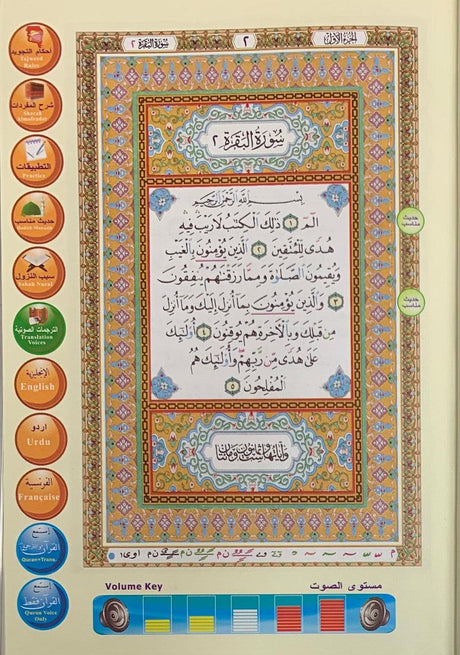 الجزء الأول
٢
سورة البقرة ٢
سُورَةُ البَقَرَةِ ٢
بِسْمِ اللَّهِ الرَّحْمَنِ الرَّحِيمِ
الٓمٓ ١ ذَٰلِكَ الْكِتَٰبُ لَا رَيْبَ فِيهِ
هُدًى لِّلْمُتَّقِينَ ٢ الَّذِينَ يُؤْمِنُونَ بِالْغَيْبِ
وَيُقِيمُونَ الصَّلَوٰةَ وَمِمَّا رَزَقْنَٰهُمْ يُنفِقُونَ
٣ وَالَّذِينَ يُؤْمِنُونَ بِمَا أُنزِلَ إِلَيْكَ وَمَا أُنزِلَ
مِن قَبْلِكَ وَبِالْآخِرَةِ هُمْ يُوقِنُونَ ٤ أُولَٰئِكَ
عَلَىٰ هُدًى مِّن رَّبِّهِمْ وَأُولَٰئِكَ هُمُ
الْمُفْلِحُونَ ٥
وآياتها مائتان وست وثمانون
أحكام التجويد
Tajweed
Rules
شرح المفردات
Sharah
Almufradat
التطبيقات
Practice
حديث مناسب
Hadith Munasib
سبب النزول
Sabab Nuzul
الترجمات الصوتية
Translation
Voices
الإنجليزية
English
اردو
Urdu
الفرنسية
Française
إستمع
القرآن والترجمة
Quran+Trans.
إستمع
القرآن فقط
Quran Voice
Only
حديث
مناسب
حديث
مناسب
Volume Key
مستوى الصوت